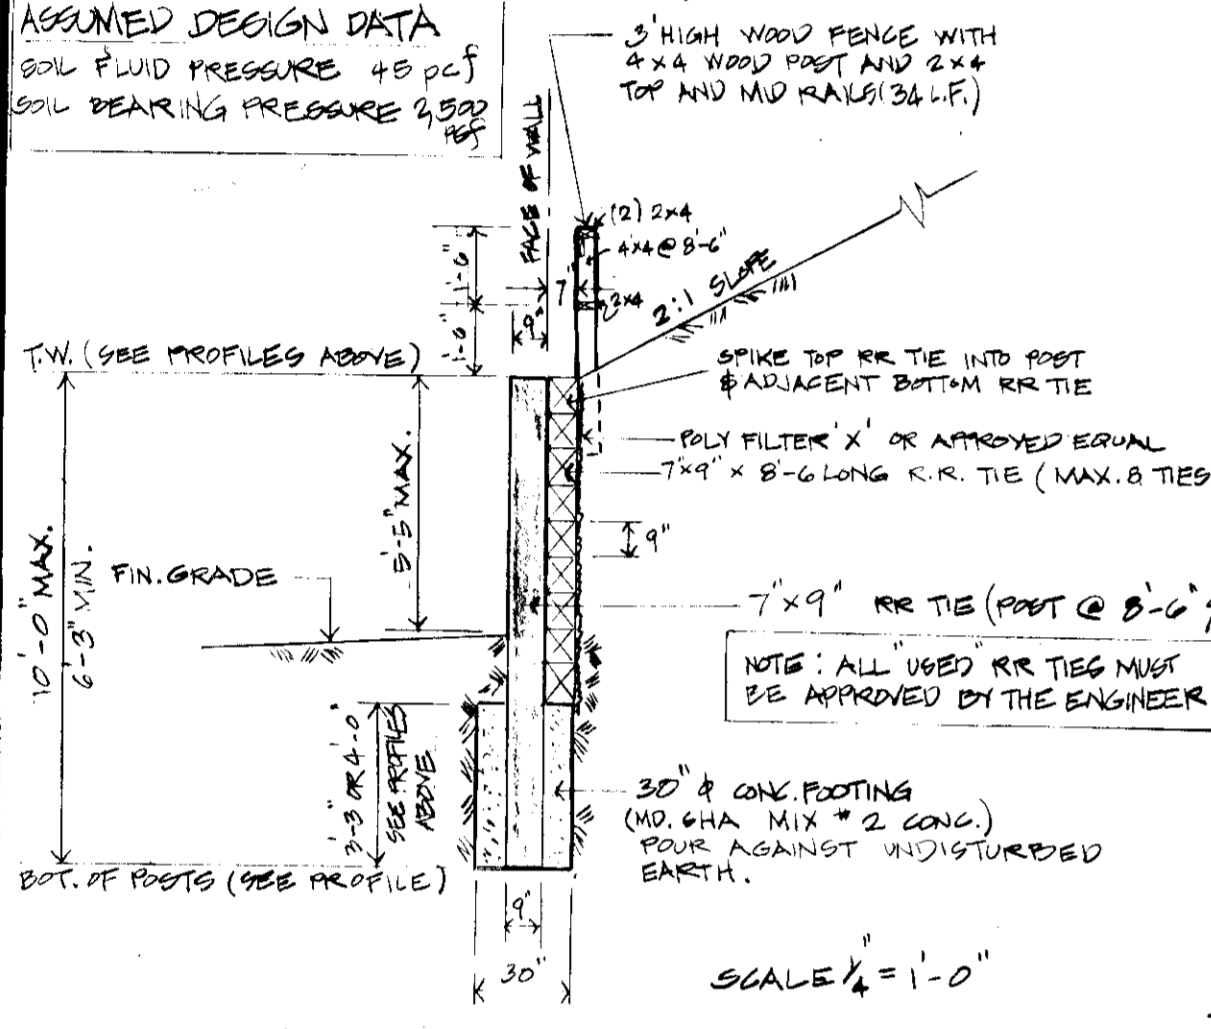 ASSUMED DESIGN DATA
SOIL FLUID PRESSURE 45 pcf
SOIL BEARING PRESSURE 2,500
PSF
3' HIGH WOOD FENCE WITH
4x4 WOOD POST AND 2x4
TOP AND MID RAILS (34 L.F.)
FACE OF WALL
(2) 2x4
4x4 @ 8'-6"
1'-6"
7"
2x4
2:1 SLOPE
1'-6"
9"
T.W. (SEE PROFILES ABOVE)
SPIKE TOP RR TIE INTO POST
& ADJACENT BOTTOM RR TIE
POLY FILTER 'X' OR APPROVED EQUAL
7"x9" x 8'-6 LONG R.R. TIE (MAX. 8 TIES
5'-5" MAX.
9"
10'-0" MAX.
6'-3" MIN.
FIN. GRADE
7"x9" RR TIE (POST @ 8'-6"
NOTE: ALL "USED" RR TIES MUST
BE APPROVED BY THE ENGINEER
3'-3 OR 4'-0"
SEE PROFILES
ABOVE
30" ϕ CONC. FOOTING
(MD. SHA MIX # 2 CONC.)
POUR AGAINST UNDISTURBED
EARTH.
BOT. OF POSTS (SEE PROFILE)
9"
30"
SCALE 1/4" = 1'-0"